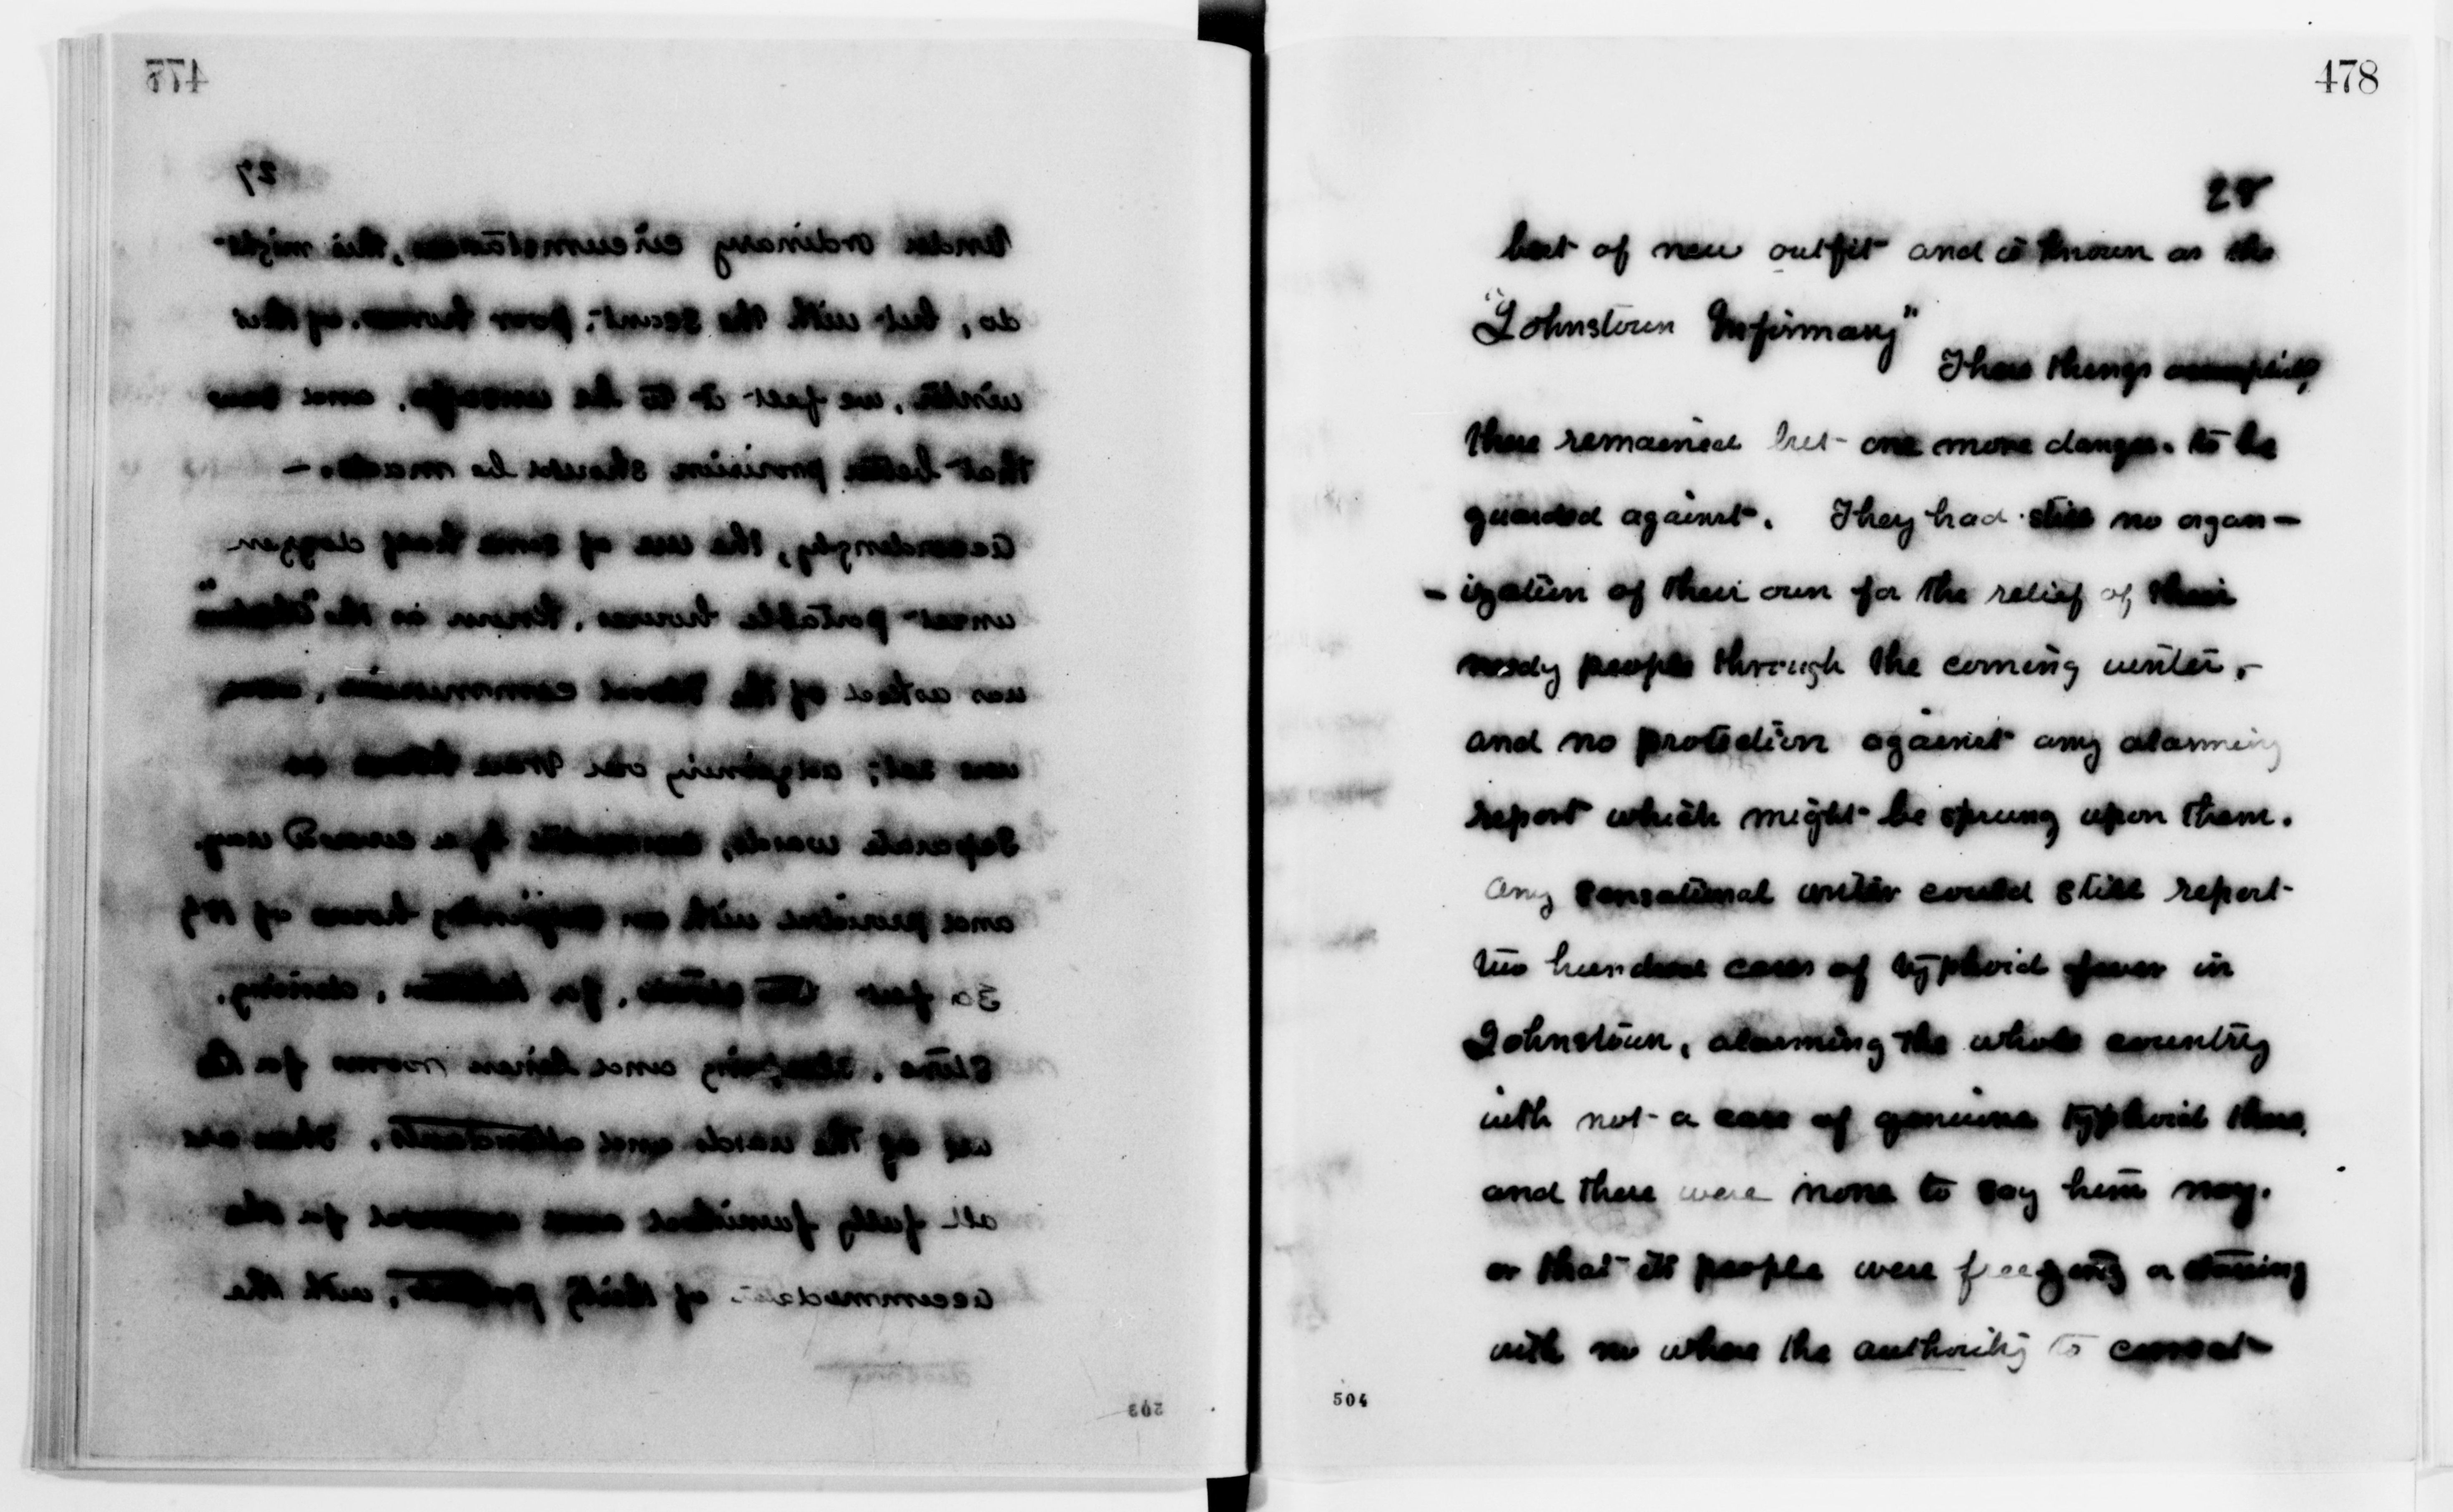 477
27
Under ordinary circumstances, this might
do, but with the scant, poor homes, of this
winter, we felt it to be unsafe, and
that better provision should be made. —
Accordingly, the use of one half dozzen
unset portable houses, known as the
was asked of the commission, and
were set, adjoining our ware house as
separate wards, by a covered way.
and provided with an adjoining house of 104
30 feet for kitchen, dining,
store, sleeping and linen rooms for the
use of the wards and attendants. These are
all fully furnished and for the
accommodat of thirty patients, with the
503
478
28
best of new outfit and is known as the
"Johnstown Infirmary"
These things
there remained but one more danger to be
guarded against. They had still no organ-
- ization of their own for the relief of their
needy people through the coming winter, -
and no protection against any alarming
report which might be sprung upon them.
Any sensational writer could still report
two hundred cases of typhoid fever in
Johnstown, alarming the whole country
with not a case of genuine typhoid there,
and there were none to say him nay.
or that its people were freezing or starving
with no where the authority to correct
504